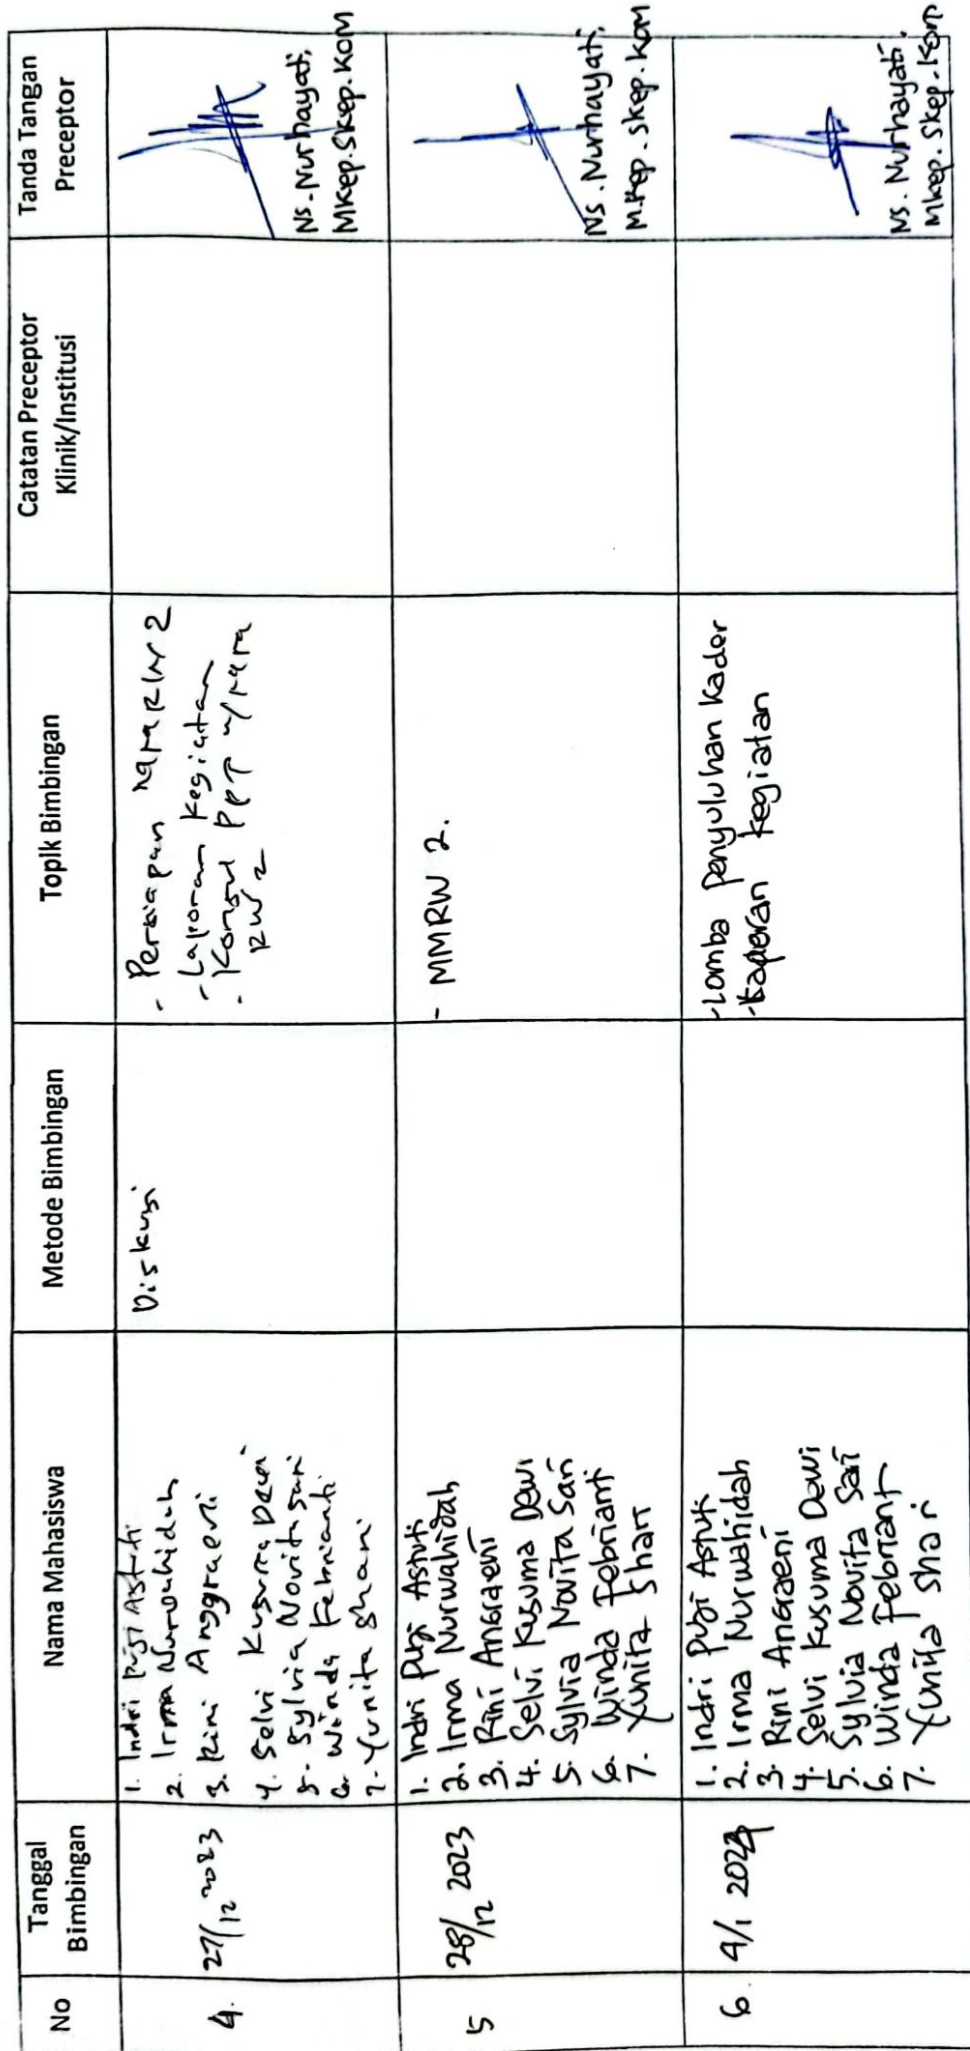 No
Tanggal
Bimbingan
Nama Mahasiswa
Metode Bimbingan
Topik Bimbingan
Catatan Preceptor
Klinik/Institusi
Tanda Tangan
Preceptor
4.
27/12 2023
1. Indri Puji Astuti
2. Irma Nurwahidah
3. Rini Anggraeni
4. Selvi Kusuma Dewi
5. Sylvia Novita Sari
6. Winda Febrianti
7. Yunita Shari
Diskusi
- Persiapan 2
- Laporan Kegiatan
- Konsul PPT u/
RW 2
Ns. Nurhayati,
MKep.SKep.KOM
5
28/12 2023
1. Indri Puji Astuti
2. Irma Nurwahidah
3. Rini Angraeni
4. Selvi Kusuma Dewi
5. Sylvia Novita Sari
6. Winda Febrianti
7. Yunita Shari
- MMRW 2.
Ns. Nurhayati,
M.Kep.SKep.Kom
6.
4/1 2024
1. Indri Puji Astuti
2. Irma Nurwahidah
3. Rini Angraeni
4. Selvi Kusuma Dewi
5. Sylvia Novita Sari
6. Winda Febrianti
7. Yunita Shari
- Lomba Penyuluhan Kader
- kegiatan
Ns. Nurhayati,
Mkep.Skep.Kom